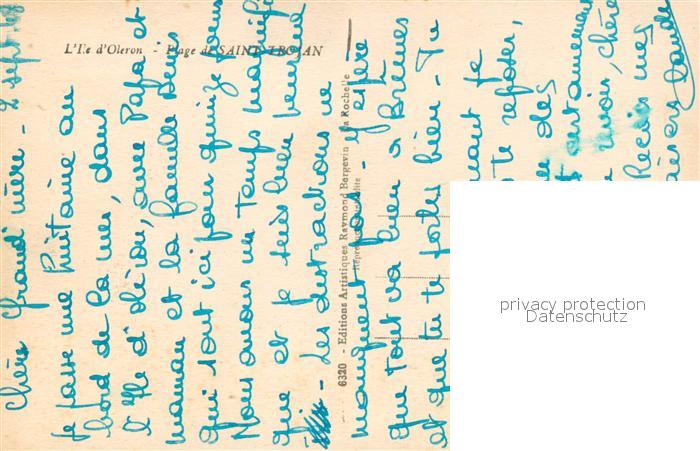 L'Ile d'Oleron - Plage de SAINT-TROJAN
6320 - Editions Artistiques Raymond Bergevin - La Rochelle
2 Sept
Chère Grand'mère -
Je passe une huitaine au
bord de la mer, dans
l'Ile d'oléron, avec Papa et
maman et la famille Denis
qui sont ici pour quinze jours
Nous avons un temps magnifi
que et je suis bien
- Les distractions ne
manquent pas - J'espère
que tout va bien à
et que tu te portes bien - Tu
te reposer,
des
certainement
revoir, chère
Reçois mes
baisers
privacy protection
Datenschutz